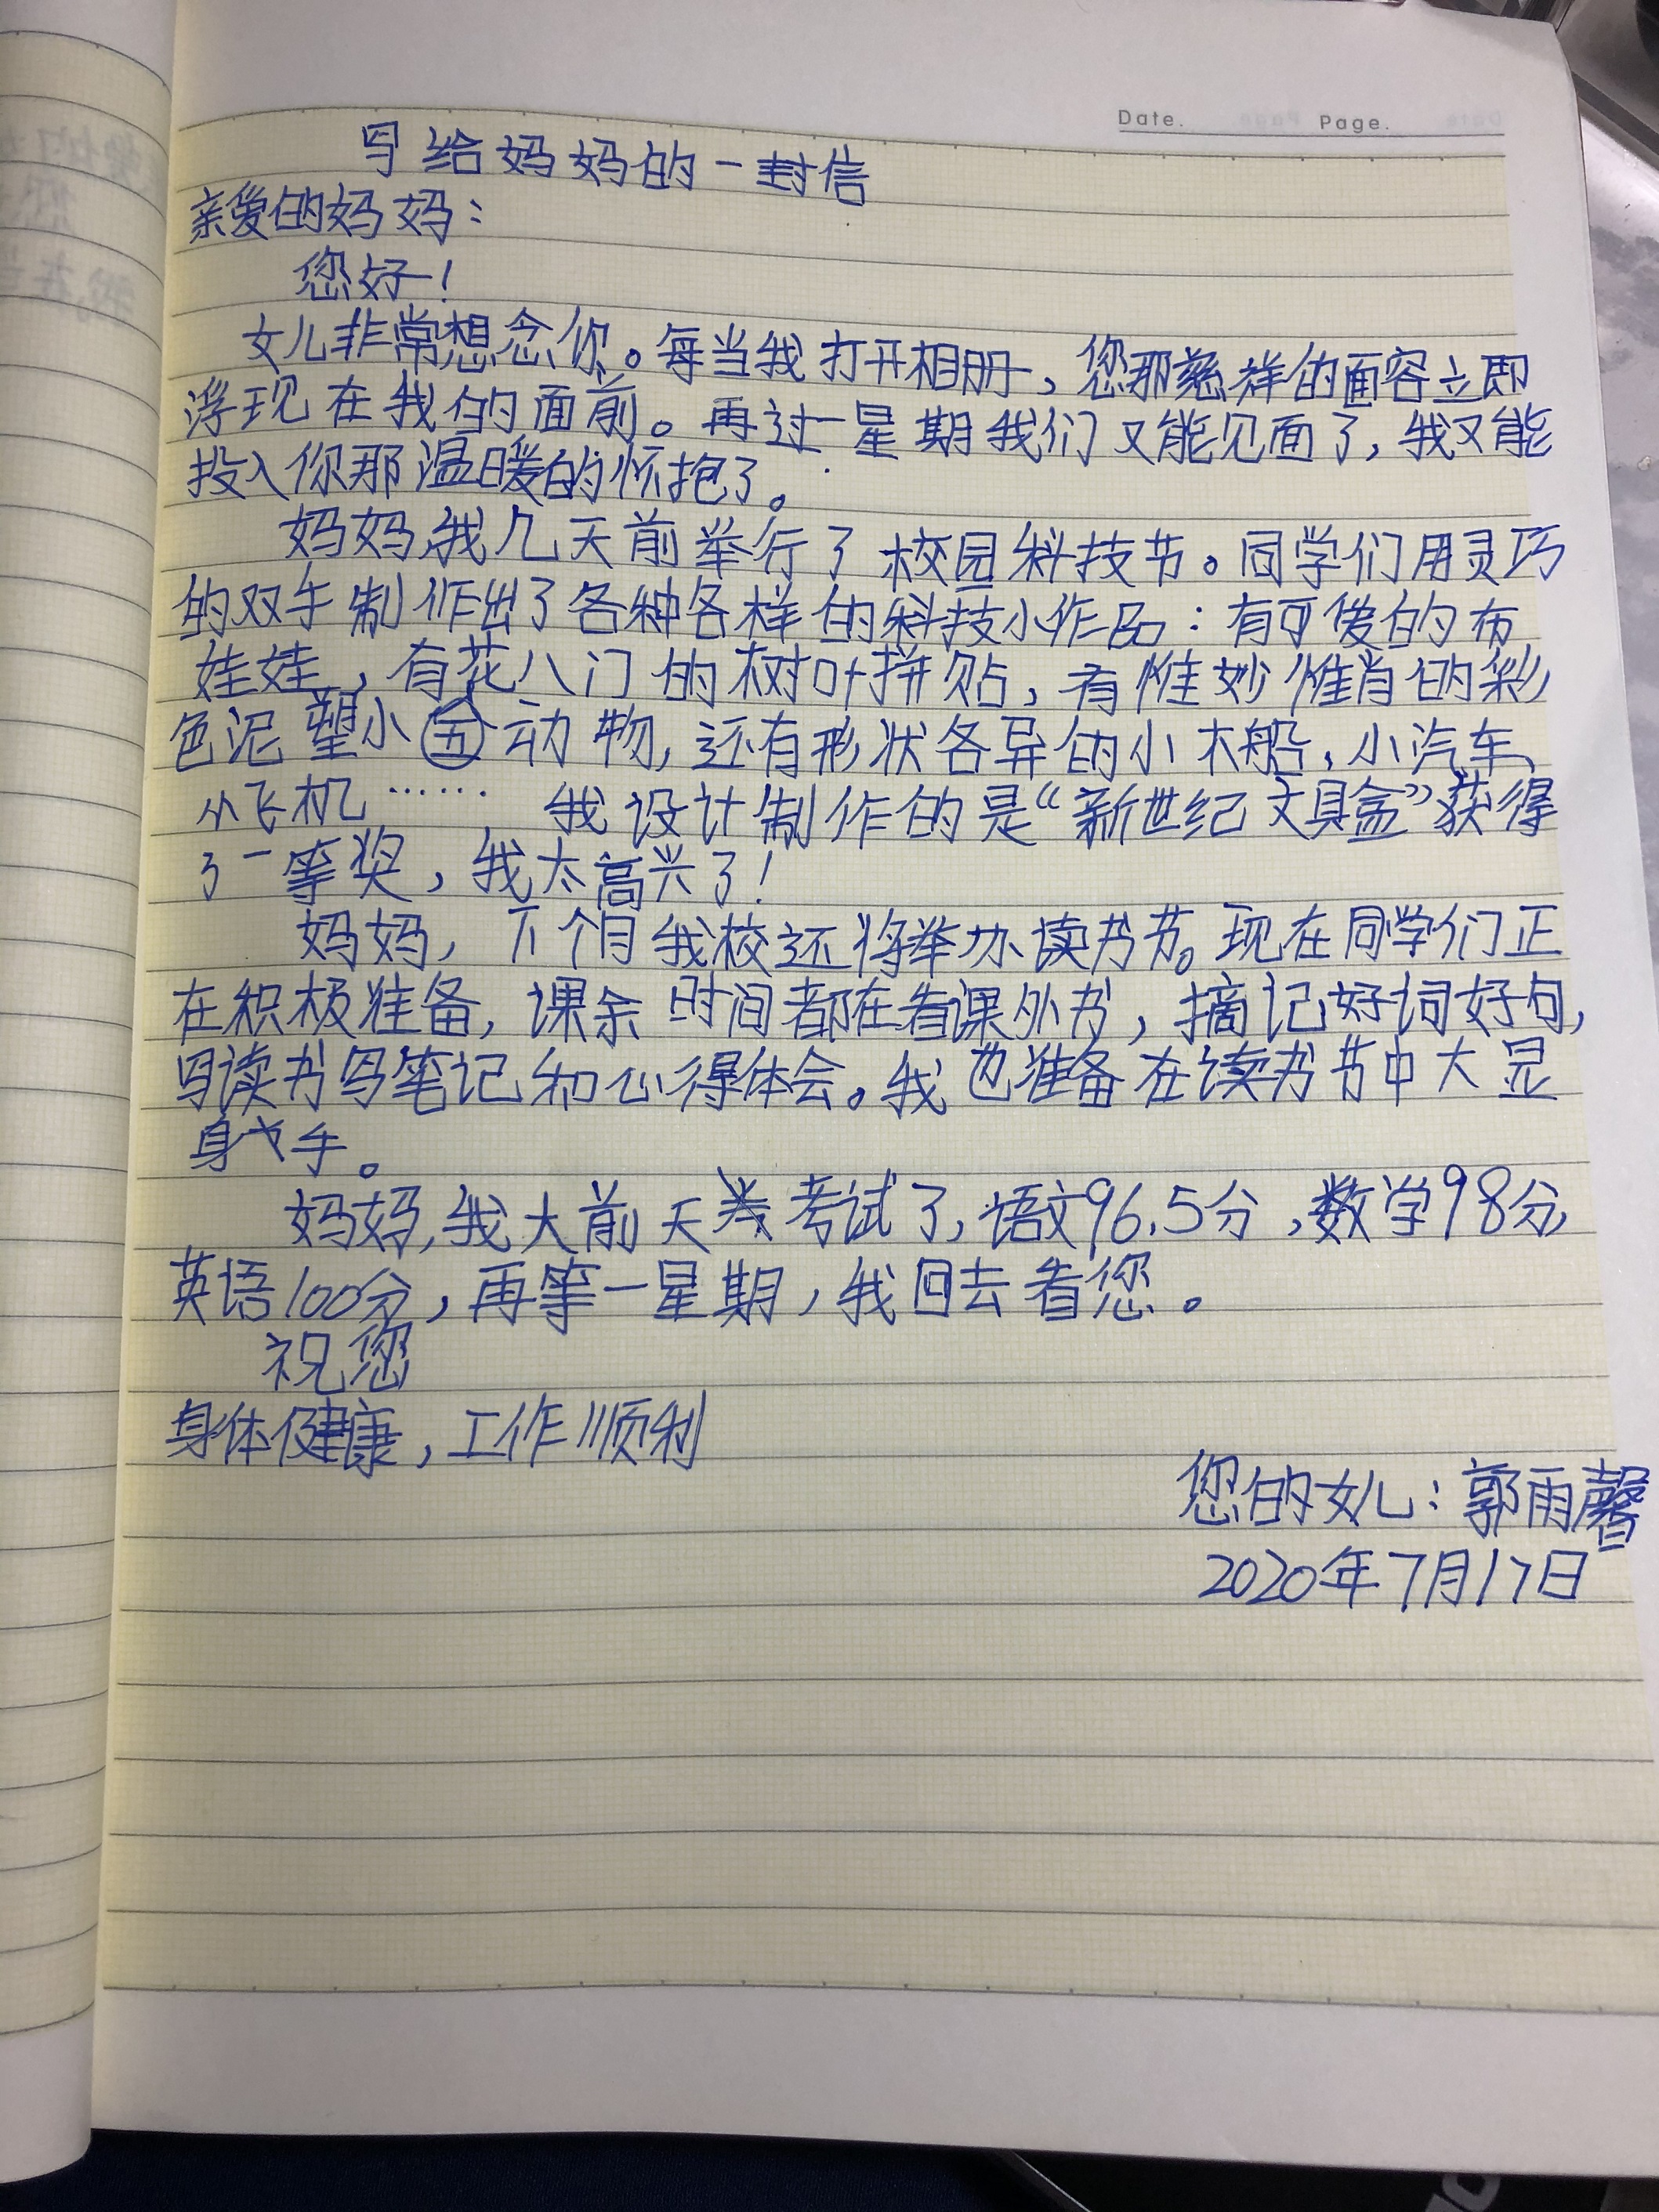 Date.
Page.
写给妈妈的一封信
亲爱的妈妈：
您好！
女儿非常想念你。每当我打开相册，您那慈祥的面容立即
浮现在我的面前。再过一星期我们又能见面了，我又能
投入你那温暖的怀抱了。
妈妈，我几天前举行了校园科技节。同学们用灵巧
的双手制作出了各种各样的科技小作品：有可爱的布
娃娃，有花八门的树叶拼贴，有惟妙惟肖的彩
色泥塑小五动物，还有形状各异的小木船，小汽车、
小飞机……我设计制作的是“新世纪文具盒”获得
了一等奖，我太高兴了！
妈妈，下个月我校还将举办读书节。现在同学们正
在积极准备，课余时间都在看课外书，摘记好词好句，
写读书写笔记和心得体会。我也准备在读书节中大显
身手。
妈妈，我大前天考试了，语文96.5分，数学98分，
英语100分，再等一星期，我回去看您。
祝您
身体健康，工作顺利
您的女儿：郭雨馨
2020年7月17日